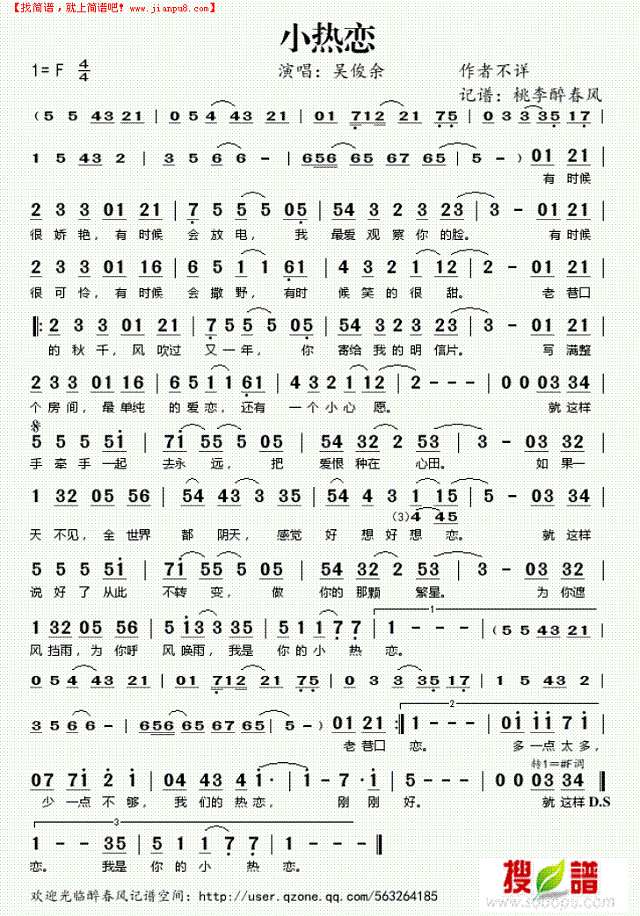 【找简谱，就上简谱吧！www.jianpu8.com】
小热恋
1= F 4/4 演唱：吴俊余 作者不详
记谱：桃李醉春风
( 5 5 43 21 | 05 4 43 2 | 01 712 21 75 | 0 3 3 335 17 |
1 5 43 2 | 3 5 6 6 - | 656 65 67 65 | 5 - ) 01 21 |
有 时候
2 3 3 01 21 | 7 5 5 5 05 | 54 3 2 3 23 | 3 - 01 21 |
很 娇 艳，有 时候 会 放 电， 我 最爱 观 察 你 的脸。 有 时候
2 3 3 01 16 | 6 5 1 1 61 | 4 3 2 1 12 | 2 - 05 43 |
很 可 怜，有 时候 会 撒 野，有时 候 笑 的 很 甜。 老 巷口
‖: 2 3 3 01 21 | 7 5 5 5 05 | 54 3 2 3 23 | 3 - 01 21 |
的 秋 千，风 吹过 又 一 年， 你 寄给 我 的 明 信片。 写 满整
2 3 3 01 16 | 6 5 1 1 61 | 4 3 2 1 12 | 2 - - - | 0 0 03 34 |
个 房 间，最 单纯 的 爱 恋，还有 一 个 小 心 愿。 就 这样
5 5 5 51 | 71 55 5 05 | 54 32 2 53 | 3 - 03 32 |
手 牵 手 一起 去永 远， 把 爱恨 种在 心田。 如 果一
1 32 05 56 | 54 43 5 54 | 3 3 1 15 | 5 - 03 34 |
(3) 4 45
天 不见，全 世界 都 阴天，感觉 好 想 好 想 恋。 就 这样
5 5 5 51 | 71 55 5 05 | 54 32 2 53 | 3 - 03 32 |
说 好 了 从此 不转 变， 做 你的 那颗 繁星。 为 你遮
1 32 05 56 | 5 13 3 35 | 5 1 1 7 7 | 1 - - - | ( 5 5 43 21 |
风 挡雨，为 你呼 风 唤雨，我是 你 的 小 热 恋。
05 4 43 2 | 01 712 21 75 | 0 3 3 35 17 | 1 5 43 2 |
3 5 6 6 - | 656 65 67 65 | 5 - ) 01 21 :‖ 1 - - - | 01 11 7 1 |
老 巷口 恋。 多 一点 太 多，
转1=#F调
07 71 2 1 | 04 43 4 1· 1 | 1 - 7· 1 | 1 - - - | 0 0 03 34 ‖
少 一点 不 够， 我 们的 热 恋， 刚 刚 好。 就 这样 D.S
1 - - 35 | 5 1 1 7 7 | 1 - - - ‖
恋。 我是 你 的 小 热 恋。
欢迎光临醉春风记谱空间：http://user.qzone.qq.com/563264185
搜谱
www.sooopu.com